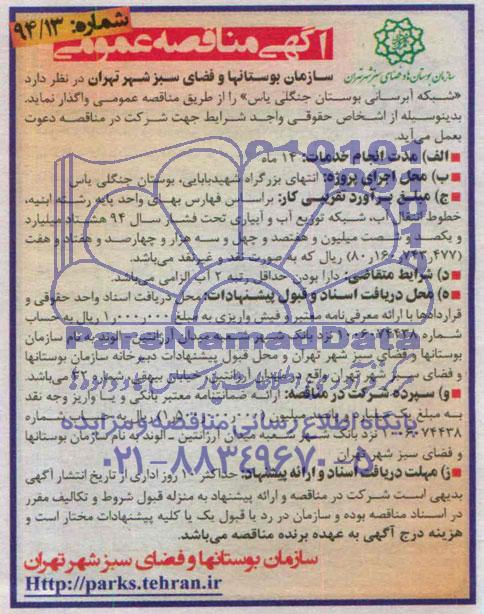 شماره: ۹۴/۱۳
آگهی مناقصه عمومی
سازمان بوستان‌ها و فضای سبز شهر تهران
سازمان بوستانها و فضای سبز شهر تهران در نظر دارد
«شبکه آبرسانی بوستان جنگلی یاس» را از طریق مناقصه عمومی واگذار نماید.
بدینوسیله از اشخاص حقوقی واجد شرایط جهت شرکت در مناقصه دعوت
بعمل می‌آید.
الف) مدت انجام خدمات: ۱۴ ماه
ب) محل اجرای پروژه: انتهای بزرگراه شهیدبابایی، بوستان جنگلی یاس
ج) مبلغ برآورد تقریبی کار: براساس فهارس بهای واحد پایه رشته ابنیه،
خطوط انتقال آب، شبکه توزیع آب و آبیاری تحت فشار سال ۹۴ هشتاد میلیارد
و یکصد و شصت میلیون و هفتصد و چهل و سه هزار و چهارصد و هفتاد و هفت
(۸۰٫۱۶۰٫۷۴۳٫۴۷۷) ریال که به صورت نقد و غیرنقد می‌باشد.
د) شرایط متقاضی: دارا بودن حداقل رتبه ۲ آب الزامی می‌باشد.
ه) محل دریافت اسناد و قبول پیشنهادات: محل دریافت اسناد واحد حقوقی و
قراردادها با ارائه معرفی‌نامه معتبر و فیش واریزی به مبلغ ۱٫۰۰۰٫۰۰۰ ریال به حساب
شماره ۱۰۰۶۰۷۴۴۳۸ نزد بانک شهر شعبه میدان آرژانتین ـ الوند به نام سازمان
بوستانها و فضای سبز شهر تهران و محل قبول پیشنهادات دبیرخانه سازمان بوستانها
و فضای سبز شهر تهران واقع در میدان آرژانتین خیابان بیهقی شماره ۴۲ می‌باشد.
و) سپرده شرکت در مناقصه: ارائه ضمانتنامه معتبر بانکی و یا واریز وجه نقد
به مبلغ یک میلیارد و پانصد میلیون ریال به حساب شماره
۱۰۰۶۰۷۴۴۳۸ نزد بانک شهر شعبه میدان آرژانتین ـ الوند به نام سازمان بوستانها
و فضای سبز شهر تهران
ز) مهلت دریافت اسناد و ارائه پیشنهاد: حداکثر ۱۰ روز اداری از تاریخ انتشار آگهی
بدیهی است شرکت در مناقصه و ارائه پیشنهاد به منزله قبول شروط و تکالیف مقرر
در اسناد مناقصه بوده و سازمان در رد یا قبول یک یا کلیه پیشنهادات مختار است و
هزینه درج آگهی به عهده برنده مناقصه می‌باشد.
سازمان بوستانها و فضای سبز شهر تهران
Http://parks.tehran.ir
ParsNamadData
پایگاه اطلاع رسانی مناقصه و مزایده
۰۲۱-۸۸۳۴۹۶۷۰-۵